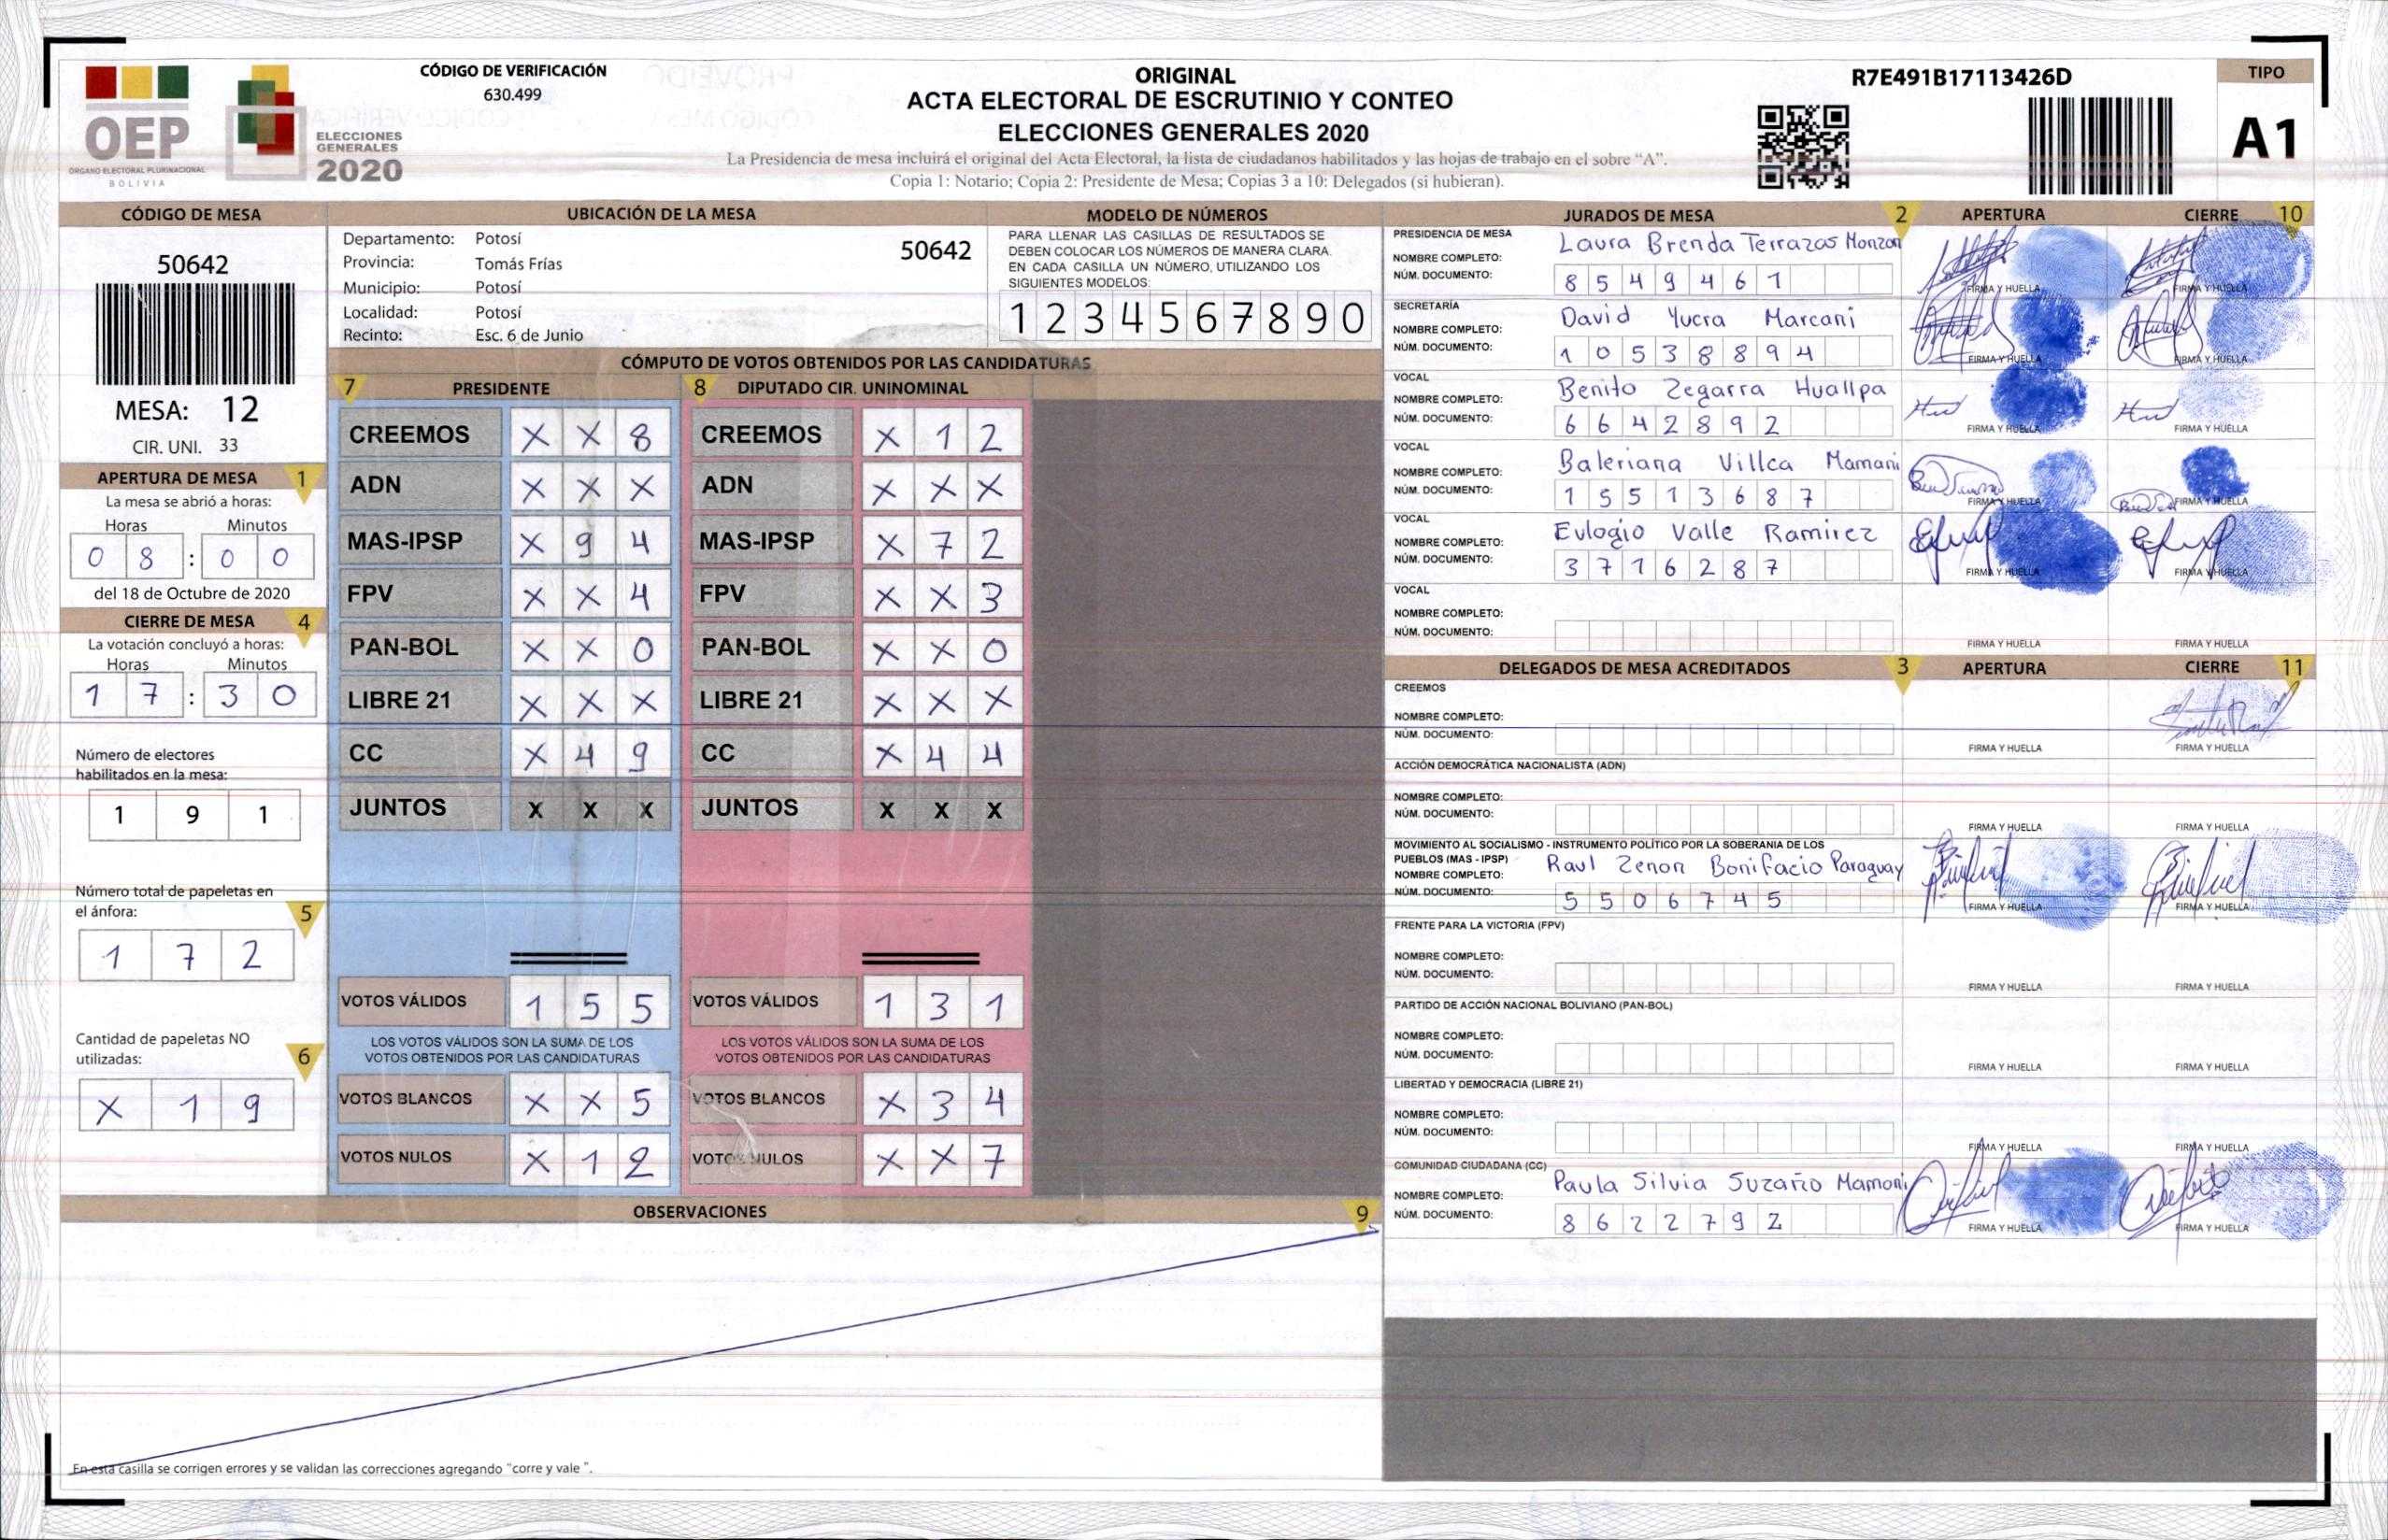 OEP
ÓRGANO ELECTORAL PLURINACIONAL
BOLIVIA
ELECCIONES
GENERALES
2020
CÓDIGO DE VERIFICACIÓN
630.499
ORIGINAL
ACTA ELECTORAL DE ESCRUTINIO Y CONTEO
ELECCIONES GENERALES 2020
La Presidencia de mesa incluirá el original del Acta Electoral, la lista de ciudadanos habilitados y las hojas de trabajo en el sobre “A”.
Copia 1: Notario; Copia 2: Presidente de Mesa; Copias 3 a 10: Delegados (si hubieran).
R7E491B17113426D
TIPO
A1
CÓDIGO DE MESA
50642
MESA: 12
CIR. UNI. 33
APERTURA DE MESA 1
La mesa se abrió a horas:
Horas Minutos
0 8 : 0 0
del 18 de Octubre de 2020
CIERRE DE MESA 4
La votación concluyó a horas:
Horas Minutos
1 7 : 3 0
Número de electores
habilitados en la mesa:
1 9 1
Número total de papeletas en
el ánfora: 5
1 7 2
Cantidad de papeletas NO
utilizadas: 6
X 1 9
UBICACIÓN DE LA MESA
Departamento: Potosí 50642
Provincia: Tomás Frías
Municipio: Potosí
Localidad: Potosí
Recinto: Esc. 6 de Junio
MODELO DE NÚMEROS
PARA LLENAR LAS CASILLAS DE RESULTADOS SE
DEBEN COLOCAR LOS NÚMEROS DE MANERA CLARA.
EN CADA CASILLA UN NÚMERO, UTILIZANDO LOS
SIGUIENTES MODELOS:
1 2 3 4 5 6 7 8 9 0
CÓMPUTO DE VOTOS OBTENIDOS POR LAS CANDIDATURAS
7 PRESIDENTE 8 DIPUTADO CIR. UNINOMINAL
CREEMOS X X 8 CREEMOS X 1 2
ADN X X X ADN X X X
MAS-IPSP X 9 4 MAS-IPSP X 7 2
FPV X X 4 FPV X X 3
PAN-BOL X X 0 PAN-BOL X X 0
LIBRE 21 X X X LIBRE 21 X X X
CC X 4 9 CC X 4 4
JUNTOS X X X JUNTOS X X X
VOTOS VÁLIDOS 1 5 5 VOTOS VÁLIDOS 1 3 1
LOS VOTOS VÁLIDOS SON LA SUMA DE LOS LOS VOTOS VÁLIDOS SON LA SUMA DE LOS
VOTOS OBTENIDOS POR LAS CANDIDATURAS VOTOS OBTENIDOS POR LAS CANDIDATURAS
VOTOS BLANCOS X X 5 VOTOS BLANCOS X 3 4
VOTOS NULOS X 1 2 VOTOS NULOS X X 7
OBSERVACIONES 9
En esta casilla se corrigen errores y se validan las correcciones agregando "corre y vale ".
JURADOS DE MESA 2 APERTURA CIERRE 10
PRESIDENCIA DE MESA
NOMBRE COMPLETO: Laura Brenda Terrazas Monzon
NÚM. DOCUMENTO: 8 5 4 9 4 6 1
FIRMA Y HUELLA FIRMA Y HUELLA
SECRETARÍA
NOMBRE COMPLETO: David Yucra Marcani
NÚM. DOCUMENTO: 1 0 5 3 8 8 9 4
FIRMA Y HUELLA FIRMA Y HUELLA
VOCAL
NOMBRE COMPLETO: Benito Zegarra Huallpa
NÚM. DOCUMENTO: 6 6 4 2 8 9 2
FIRMA Y HUELLA FIRMA Y HUELLA
VOCAL
NOMBRE COMPLETO: Baleriana Villca Mamani
NÚM. DOCUMENTO: 1 5 5 1 3 6 8 7
FIRMA Y HUELLA FIRMA Y HUELLA
VOCAL
NOMBRE COMPLETO: Eulogio Valle Ramirez
NÚM. DOCUMENTO: 3 7 1 6 2 8 7
FIRMA Y HUELLA FIRMA Y HUELLA
VOCAL
NOMBRE COMPLETO:
NÚM. DOCUMENTO:
FIRMA Y HUELLA FIRMA Y HUELLA
DELEGADOS DE MESA ACREDITADOS 3 APERTURA CIERRE 11
CREEMOS
NOMBRE COMPLETO:
NÚM. DOCUMENTO:
FIRMA Y HUELLA FIRMA Y HUELLA
ACCIÓN DEMOCRÁTICA NACIONALISTA (ADN)
NOMBRE COMPLETO:
NÚM. DOCUMENTO:
FIRMA Y HUELLA FIRMA Y HUELLA
MOVIMIENTO AL SOCIALISMO - INSTRUMENTO POLÍTICO POR LA SOBERANIA DE LOS
PUEBLOS (MAS - IPSP)
NOMBRE COMPLETO: Raul Zenon Bonifacio Paraguay
NÚM. DOCUMENTO: 5 5 0 6 7 4 5
FIRMA Y HUELLA FIRMA Y HUELLA
FRENTE PARA LA VICTORIA (FPV)
NOMBRE COMPLETO:
NÚM. DOCUMENTO:
FIRMA Y HUELLA FIRMA Y HUELLA
PARTIDO DE ACCIÓN NACIONAL BOLIVIANO (PAN-BOL)
NOMBRE COMPLETO:
NÚM. DOCUMENTO:
FIRMA Y HUELLA FIRMA Y HUELLA
LIBERTAD Y DEMOCRACIA (LIBRE 21)
NOMBRE COMPLETO:
NÚM. DOCUMENTO:
FIRMA Y HUELLA FIRMA Y HUELLA
COMUNIDAD CIUDADANA (CC)
NOMBRE COMPLETO: Paula Silvia Suzaño Mamani
NÚM. DOCUMENTO: 8 6 2 2 7 9 2
FIRMA Y HUELLA FIRMA Y HUELLA